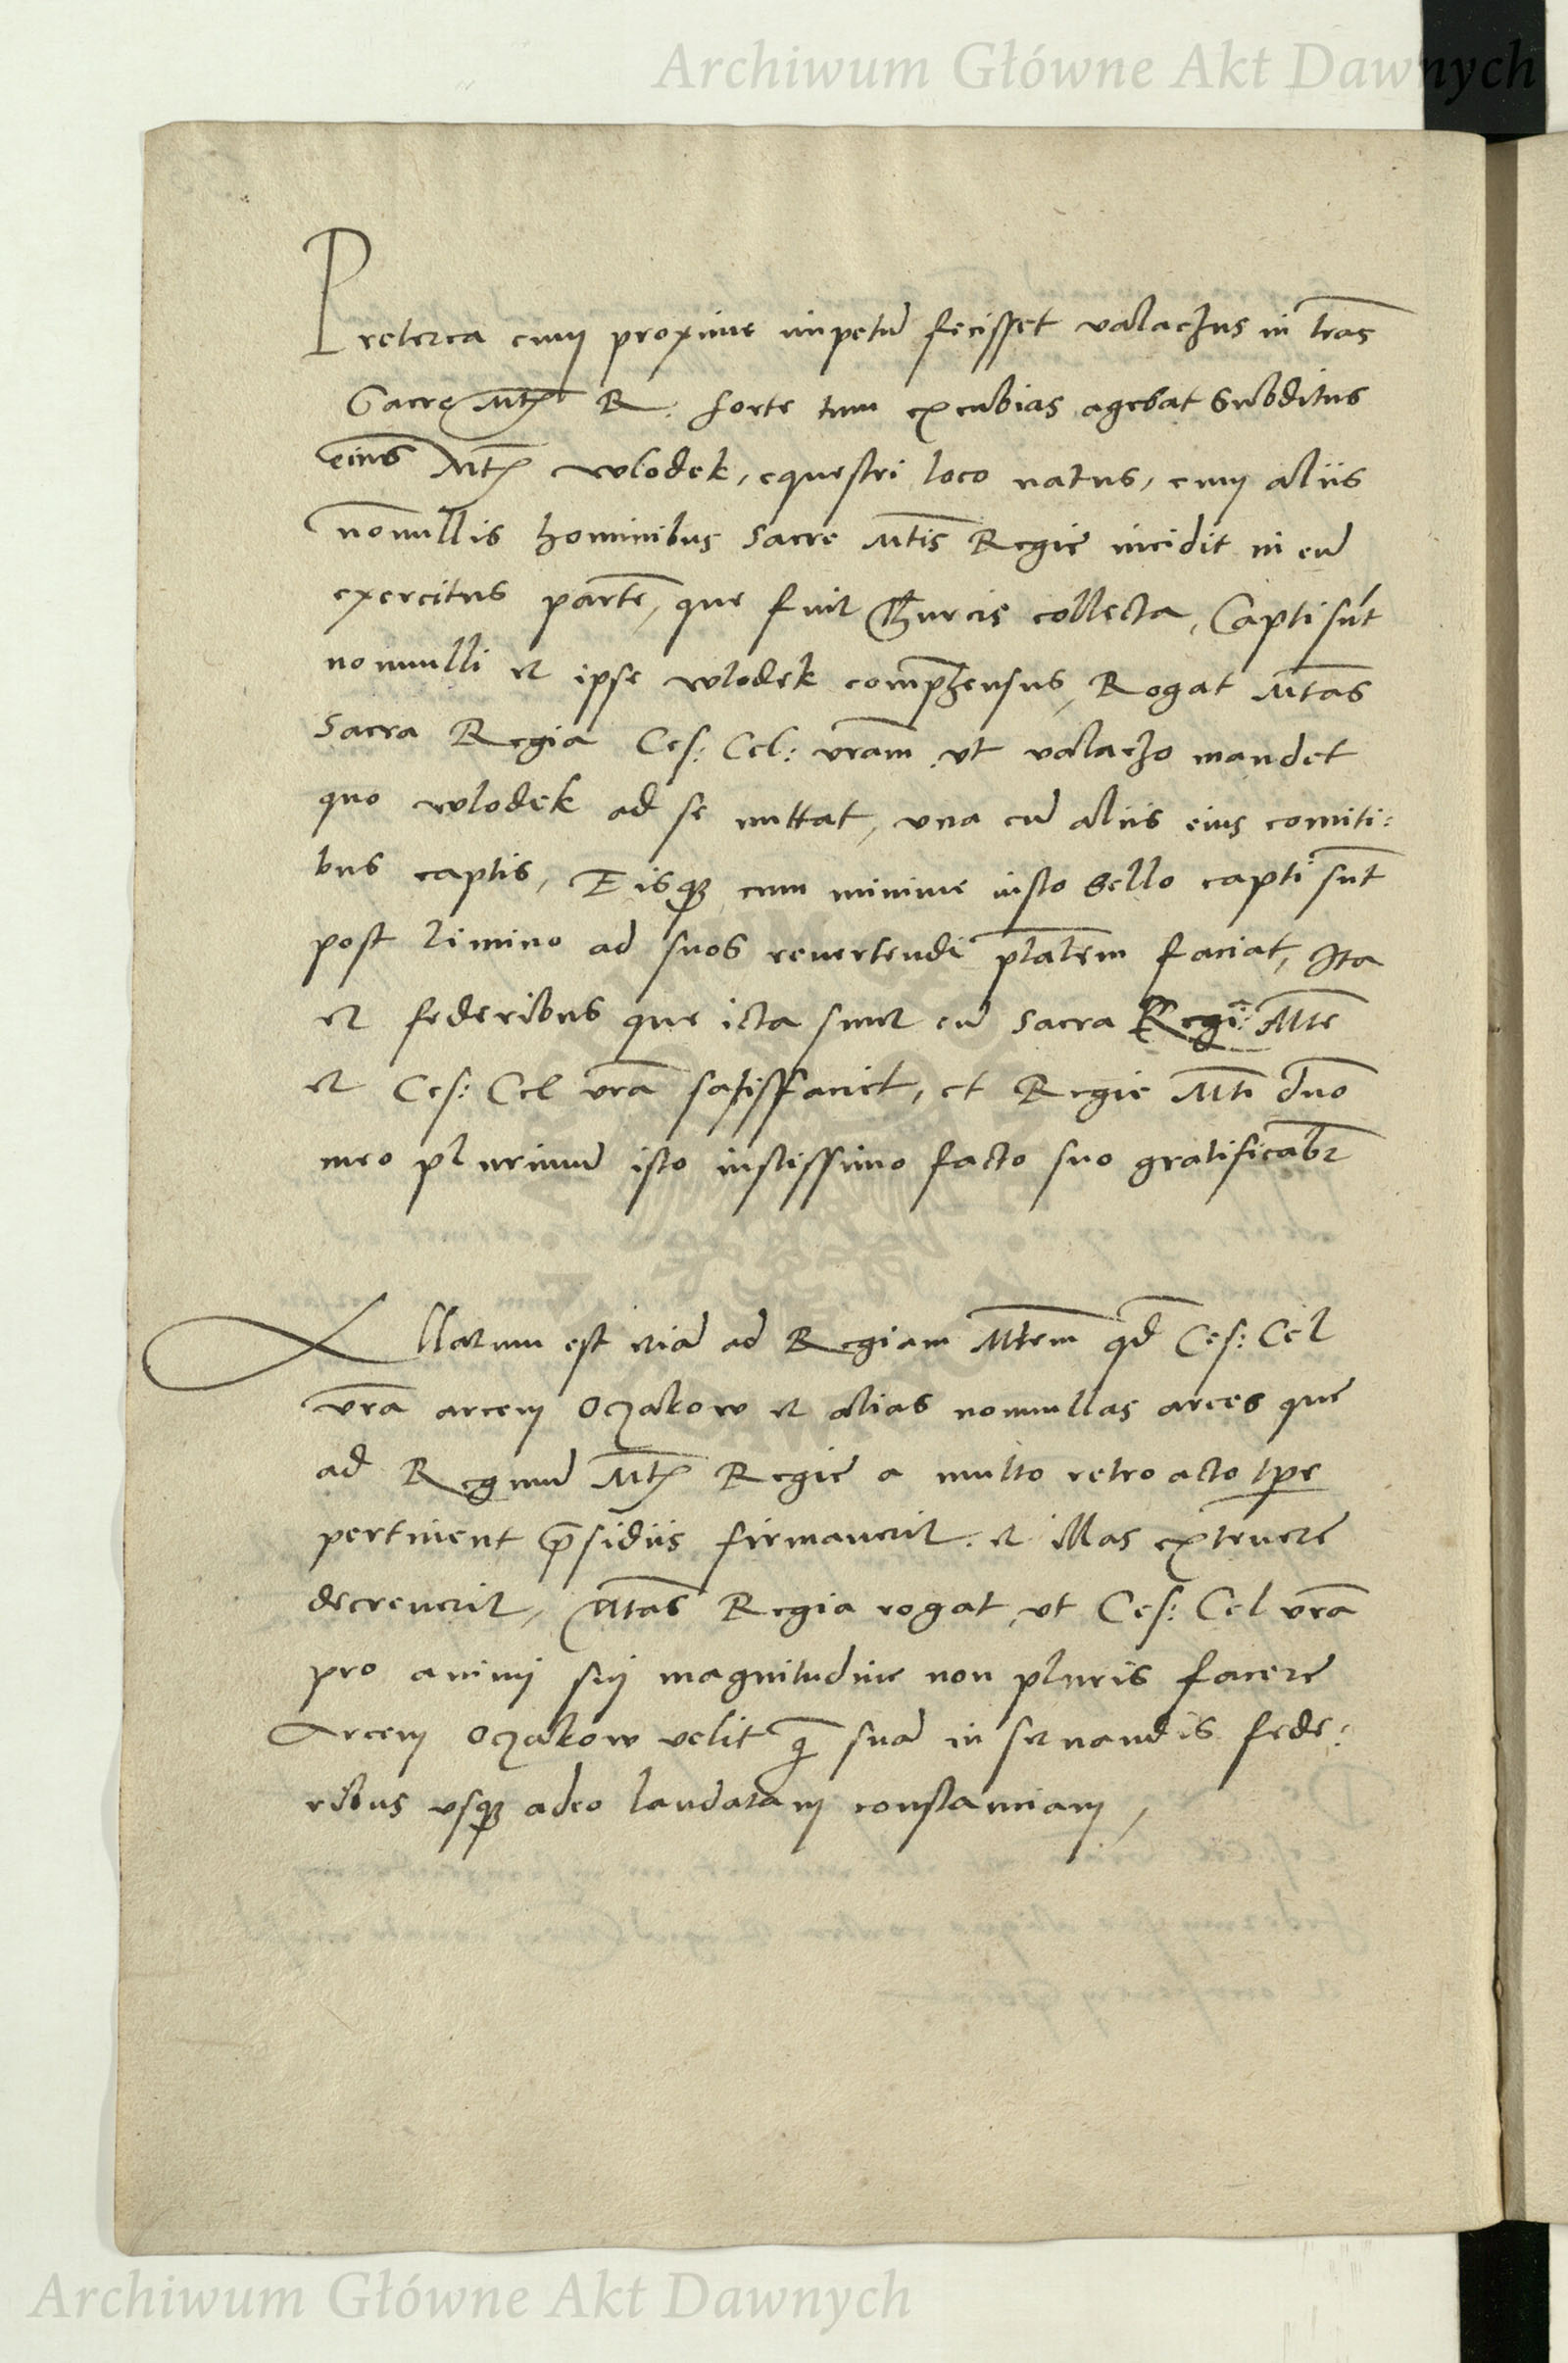 Archiwum Główne Akt Dawnych
Preterea cum proxime impetū fecisset valachus in tras
Sacre Mtis R. forte tum excubias agebat Subditus
eius Mtis wlodek, equestri loco natus, cum aliis
nonnullis hominibus Sacre Mtis Regie incidit in eū
exercitus partē, que fuit Thurcis collecta, Capti sūt
nonnulli et ipse wlodek comphensus, Rogat Mtas
Sacra Regia Ces: Cel: vram vt valacho mandet
quo wlodek ad se mittat, vna cū aliis eius comiti:
bus captis, Eisq3 cum minime iusto bello capti sūt
post limino ad suos reuertendi ptatem faciat, Ita
et federibus que icta sunt cū Sacra Regi: Mte
et Ces: Cel vra satisffaciet, et Regie Mti dno
meo plurimū isto iustissimo facto suo gratificabr
Allatum est etiā ad Regiam Mtem qd Ces: Cel
vra arcem Oczakow et alias nonnullas arces que
ad Regnum Mtis Regie a multo retro acto tpe
pertinent psidiis firmauerit. et illas extruere
decreuerit, Mtas Regia rogat vt Ces: Cel vra
pro animi sui magnitudine non pluris facere
Arcem Oczakow velit q̄ suā in seruandis fede:
ribus vsq3 adeo laudatam constanciam,
Archiwum Główne Akt Dawnych